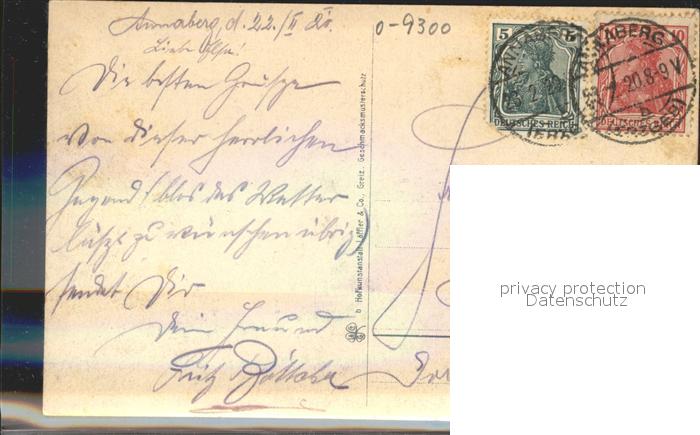 Annaberg, d. 22./II 20.
Liebe Else!
Die besten Grüsse
von dieser herrlichen
Gegend (blos das Wetter
lässt zu wünschen übrig)
sendet Dir
Dein Freund
Fritz Böttcher
0-9300
5
DEUTSCHES REICH
10
DEUTSCHES REICH
ANNABERG
20.8-9 V
b Hofkunstanstalt Löffler & Co., Greiz. Geschmacksmusterschutz
privacy protection
Datenschutz